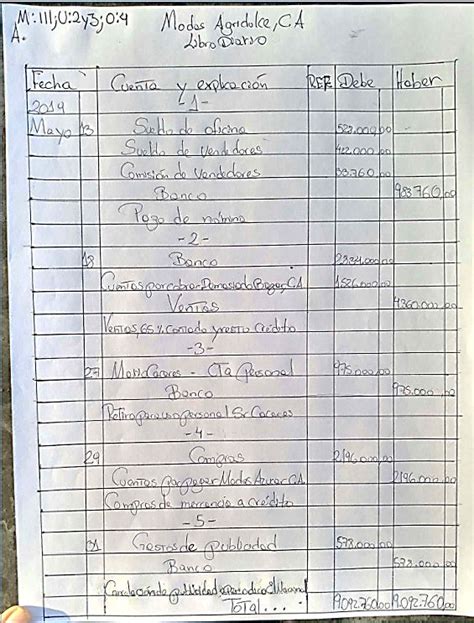 M:III;U:2y3;O:4 Modas Agridolce, CA
A. Libro Diario
Fecha Cuenta y explicación REF Debe Haber
2019 -1-
Mayo 13 Sueldo de oficina 528.000,00
Sueldo de vendedores 422.000,00
Comisión de vendedores 33.760,00
Banco 983.760,00
Pago de nómina
-2-
18 Banco 2.834.000,00
Cuentas por cobrar Demasiado Bogas, CA 1.526.000,00
Ventas 4.360.000,00
Ventas, 65% Contado y resto Crédito
-3-
27 Cáceres - Cta Personal 975.000,00
Banco 975.000,00
Retiro para uso personal Sr Cáceres
-4-
29 Compras 2.196.000,00
Cuentas por pagar Modas Azucar CA 2.196.000,00
Compras de mercancía a crédito
-5-
31 Gastos de publicidad
Banco
de publicidad Periodico El Nacional
Total.... 9.092.760,00 9.092.760,00